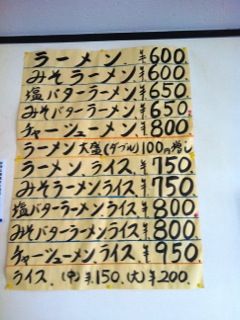 ラーメン ¥600.
みそラーメン ¥600.
塩バターラーメン ¥650
みそバターラーメン ¥650.
チャーシューメン ¥800
ラーメン 大盛(ダブル)100円増し
ラーメン ライス ¥750.
みそラーメン ライス ¥750
塩バターラーメン ライス ¥800.
みそバターラーメン ライス ¥800
チャーシューメン ライス ¥950
ライス. (中)¥150. (大)¥200.